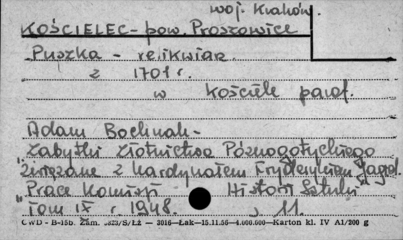 woj. Kraków.
KOŚCIELEC - pow. Proszowice
Puszka - relikwiarz
z 1701 r.
w Kościele paraf.
Adam Bochnak -
Zabytki złotnictwa Późnogotyckiego
związane z Kardynałem Fryderykiem Jagiel.
"Prace Komisji Historii Sztuki"
Tom IX r. 1948. s. 11.
CWD - B-15b. Zam. S/Łż - 3016 - Łak - 15.11.56 - 4.000.000 - Karton kl. IV A1/200 g